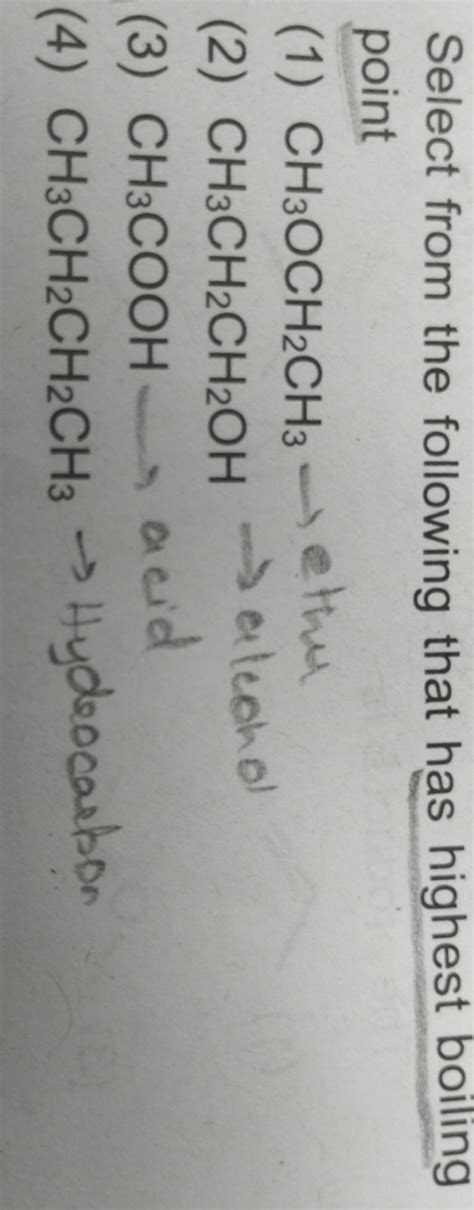 Select from the following that has highest boiling
point
(1) CH3OCH2CH3 → ethu
(2) CH3CH2CH2OH → alcohol
(3) CH3COOH → acid
(4) CH3CH2CH2CH3 → Hydrocarbon